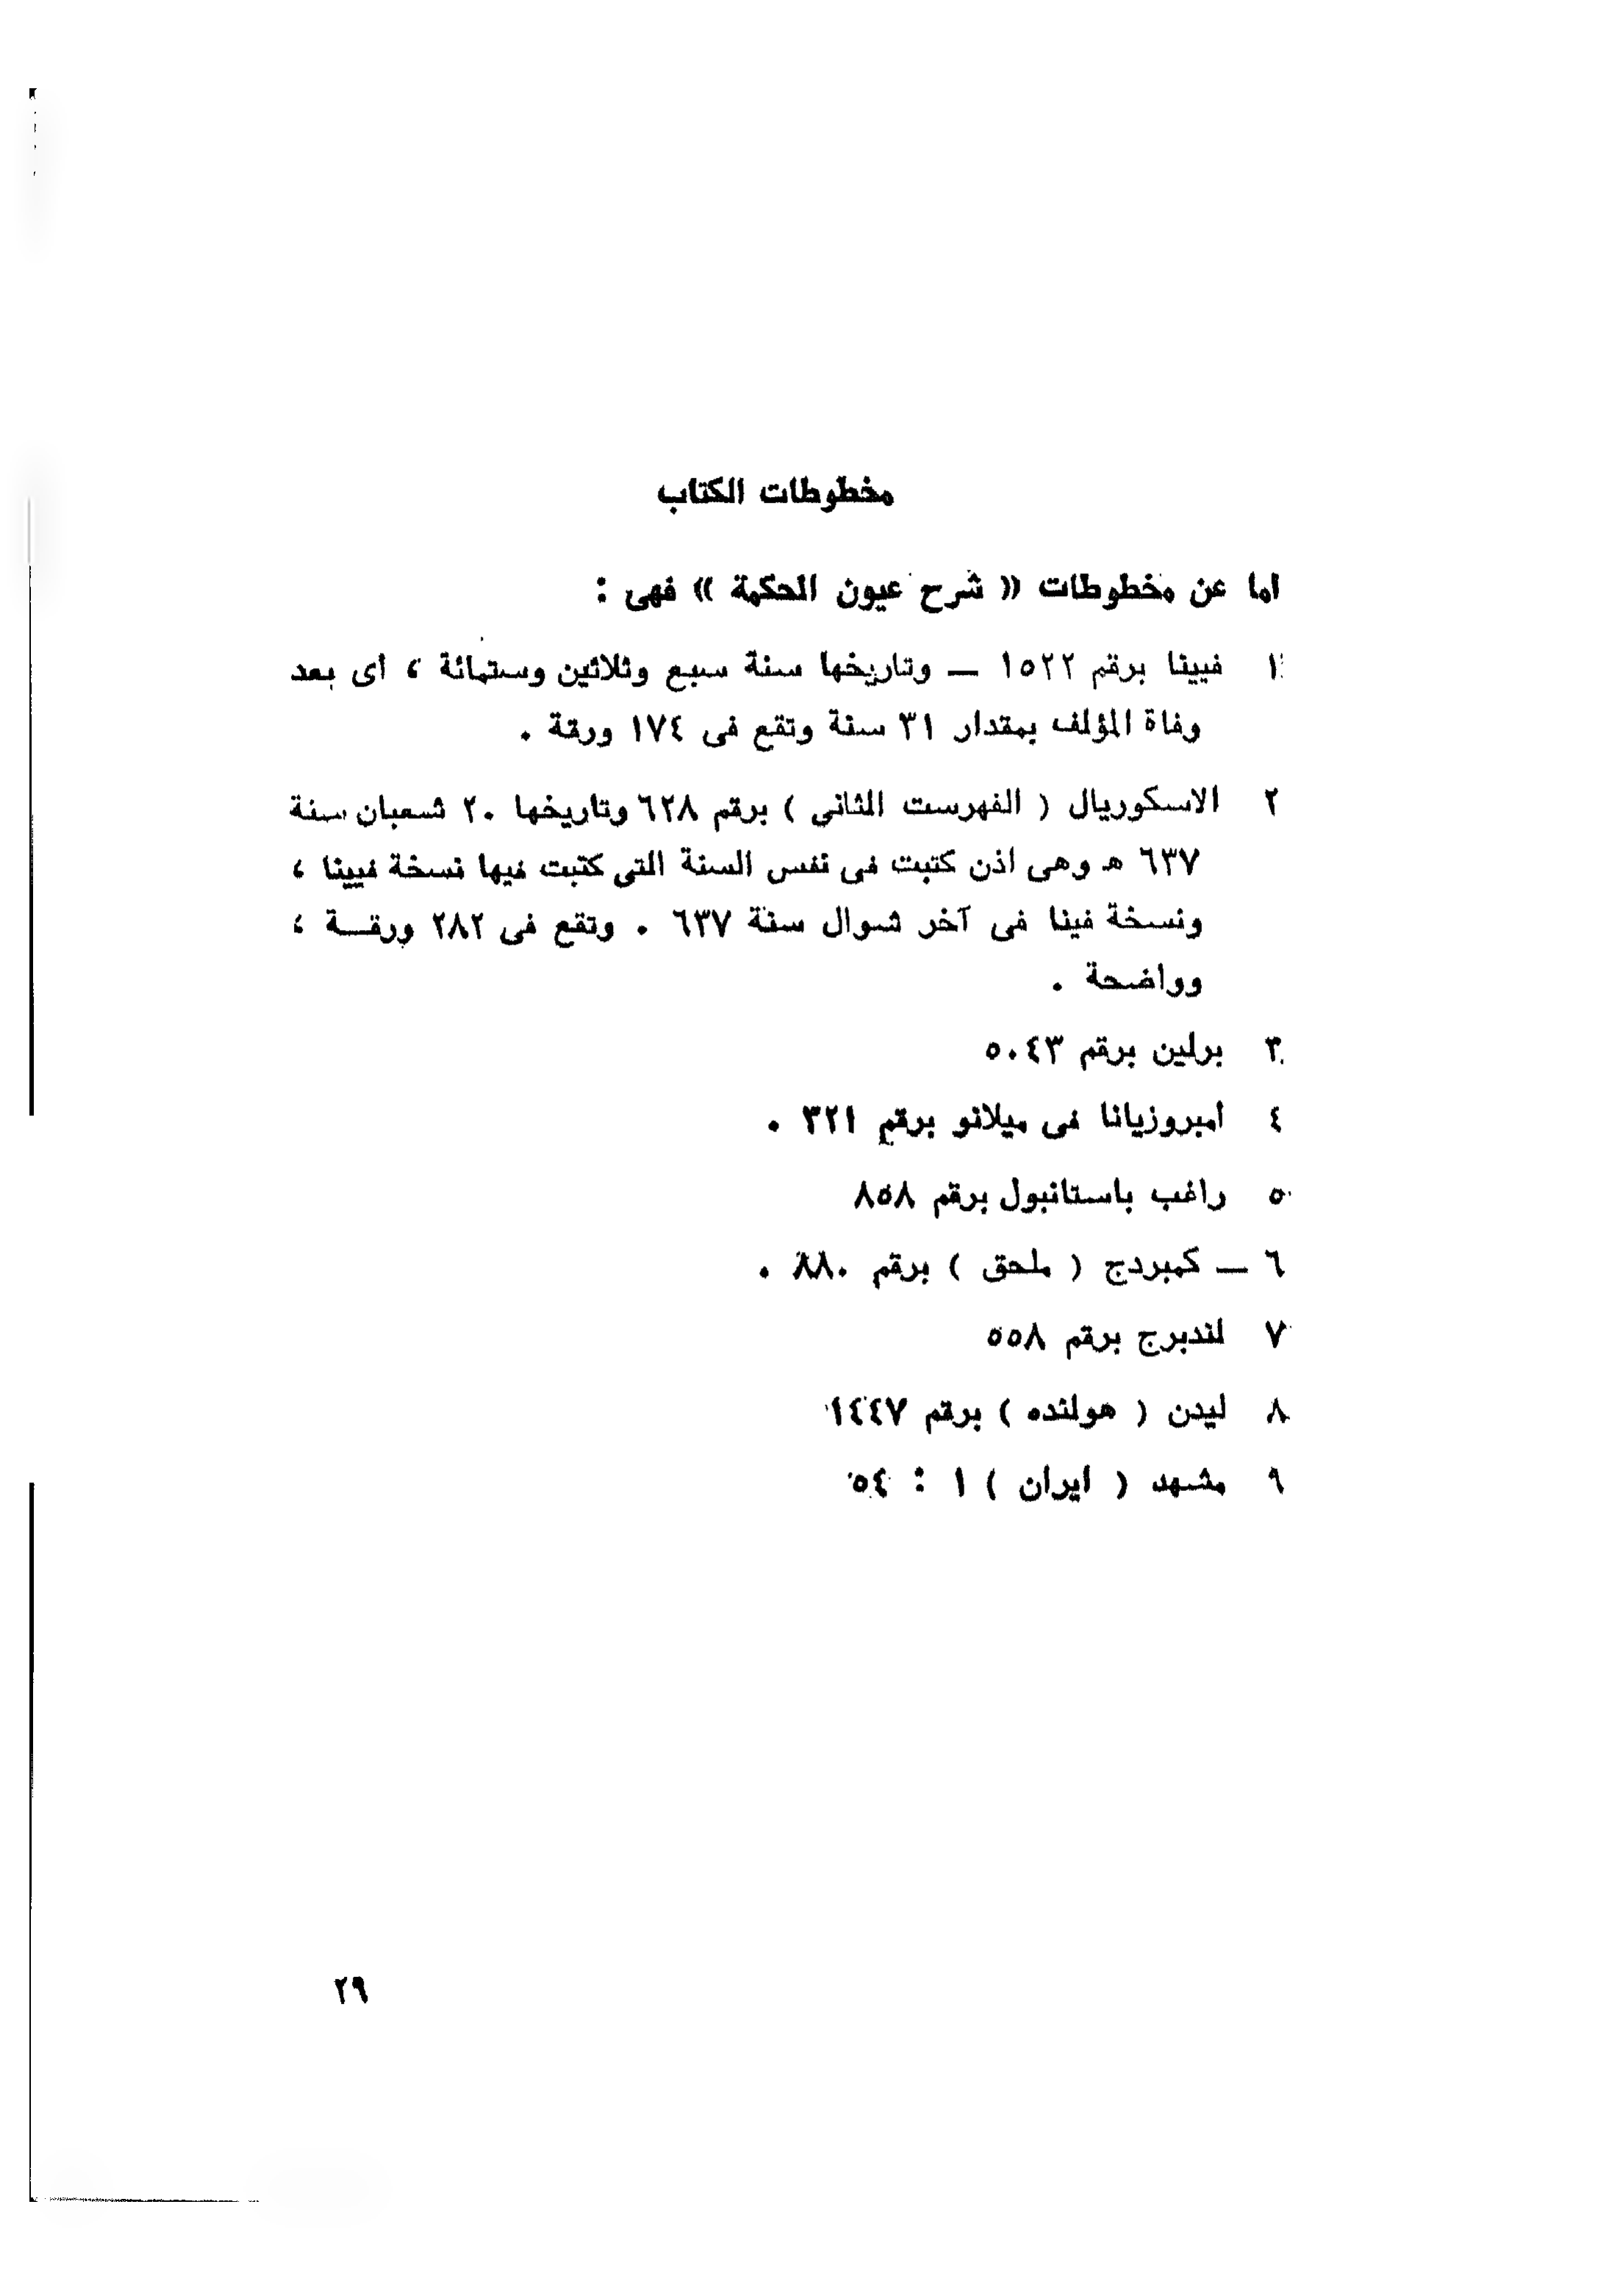 مخطوطات الكتاب
اما عن مخطوطات « شرح عيون الحكمة » فهى :
١ فيينا برقم ١٥٢٢ — وتاريخها سنة سبع وثلاثين وستمائة ، أى بعد
وفاة المؤلف بمقدار ٣١ سنة وتقع فى ١٧٤ ورقة .
٢ الاسكوريال ( الفهرست الثانى ) برقم ٦٢٨ وتاريخها ٢٠ شعبان سنة
٦٣٧ هـ وهى اذن كتبت فى نفس السنة التى كتبت فيها نسخة فيينا ،
ونسخة فينا فى آخر شوال سنة ٦٣٧ . وتقع فى ٢٨٢ ورقـــة ،
وواضحة .
٣ برلين برقم ٥٠٤٣
٤ أمبروزيانا فى ميلانو برقم ٣٢١ .
٥ راغب باستانبول برقم ٨٥٨
٦ — كمبردج ( ملحق ) برقم ٨٨٠ .
٧ لندبرج برقم ٥٥٨
٨ ليدن ( هولنده ) برقم ١٤٤٧
٩ مشهد ( ايران ) ١ : ٥٤
٢٩